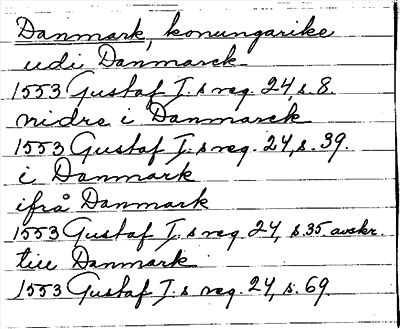 Danmark, konungarike
udi Danmarck
1553 Gustaf I:s reg. 24, s. 8.
nidre i Danmarck
1553 Gustaf I:s reg. 24, s. 39.
i Danmark
ifrå Danmark
1553 Gustaf I:s reg. 24, s. 35. avskr.
till Danmark
1553 Gustaf I:s reg. 24, s. 69.